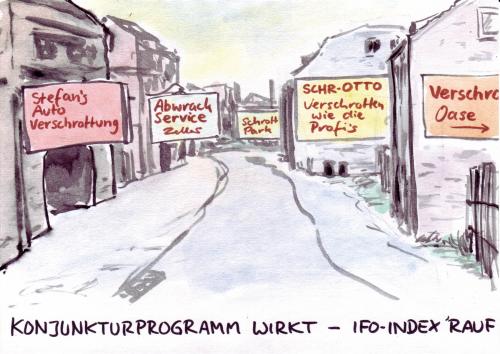 Stefan's
Auto
Verschrottung
Abwrack
Service
Zeller
Schrott
Park
SCHR-OTTO
Verschrotten
wie die
Profi's
Verschro
Oase
KONJUNKTURPROGRAMM WIRKT – IFO-INDEX 'RAUF